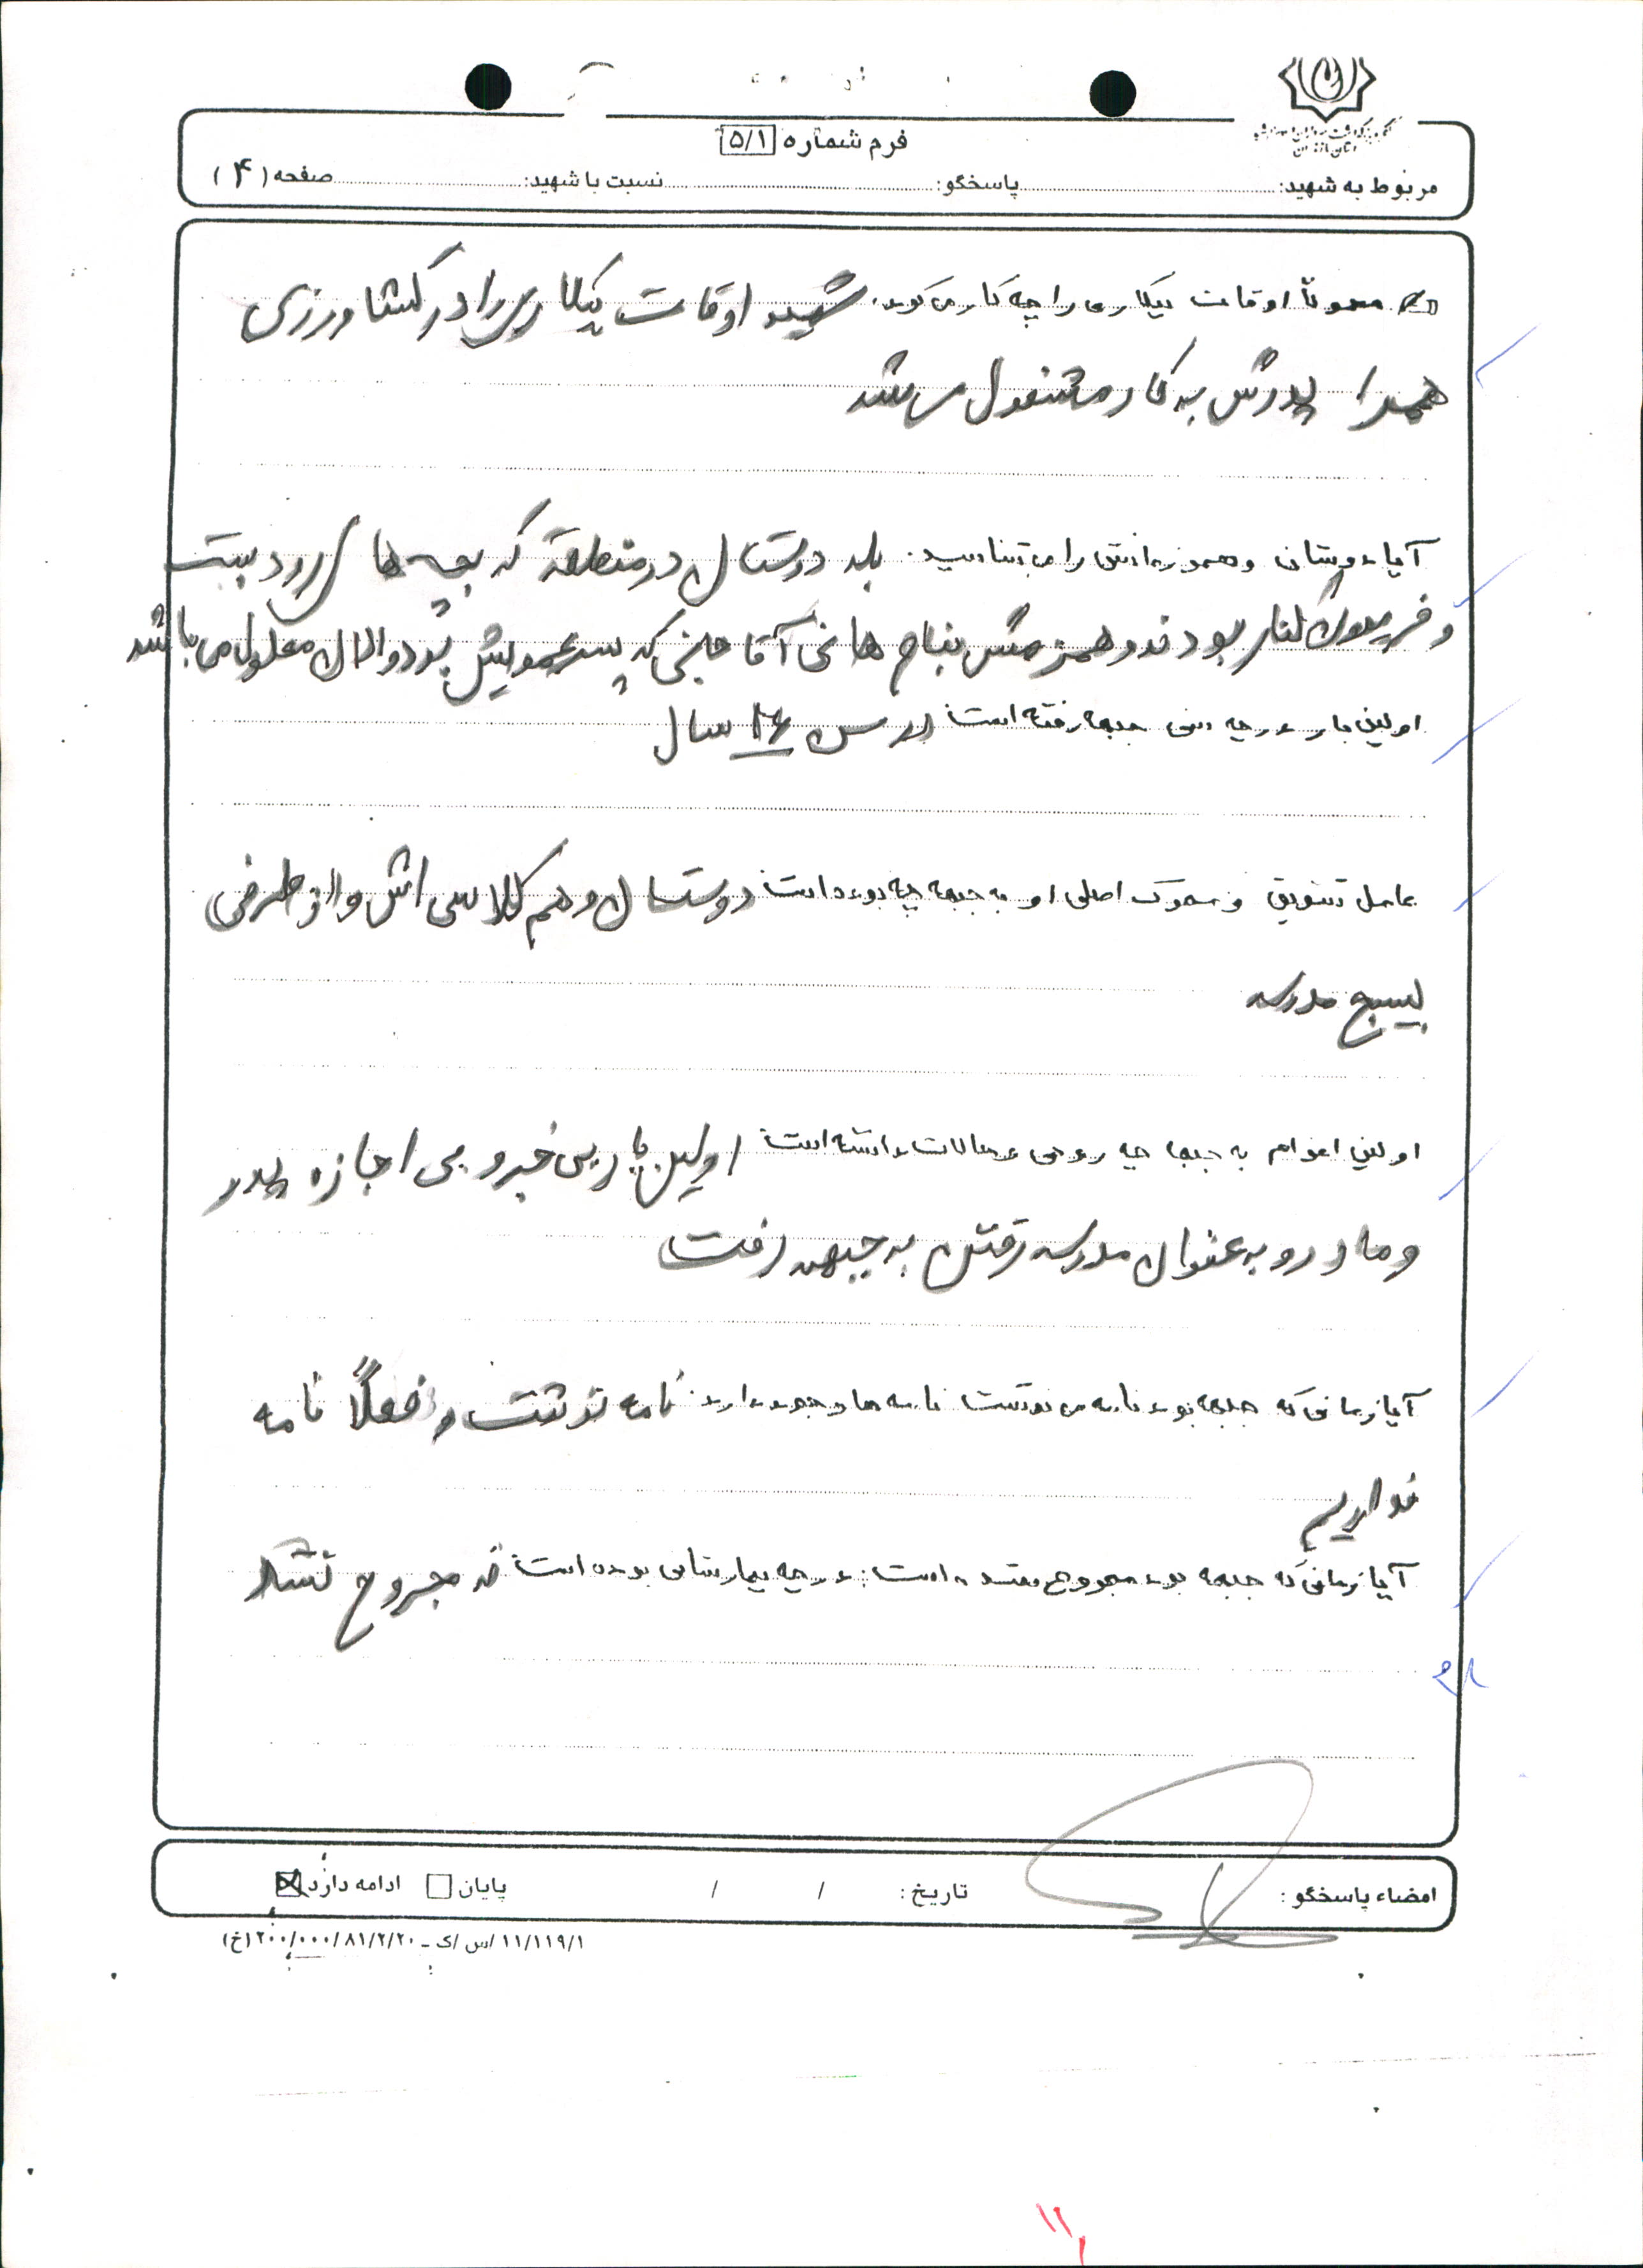 فرم شماره ۵/۱
مربوط به شهید: پاسخگو: نسبت با شهید: صفحه (۴)
معمولاً اوقات بیکاری را چه کار می کرد. شهید اوقات بیکاری را در کشاورزی
همراه پدرش به کار مشغول می شد
آیا دوستان و همرزمانش را می شناسید. بله دوستان در منطقه که بچه ها رود بست
و فریدونکنار بودند و همرزمش بنام هانی آقاجانی که پسر عمویش بود و الان معلول می باشد
اولین بار در چه سنی جبهه رفته است در سن ۱۶ سال
عامل تشویق و محرک اصلی او به جبهه چه بوده است دوستان و هم کلاسی اش و از طرفی
بسیج مدرسه
اولین اعزام به جبهه چه روحی و حالات داشته است اولین بار بی خبر و بی اجازه پدر
و مادر و به عنوان مدرسه رفتن به جبهه رفت
آیا زمانی که جبهه بود نامه می نوشت نامه ها وجود دارد نامه نوشت و فعلاً نامه
نداریم
آیا زمانی که جبهه بود مجروح شده است: در چه بیمارستانی بوده است نه مجروح نشد
امضاء پاسخگو: تاریخ: / / پایان ادامه دارد
۱۱/۱۱۹/۱ /س /ک - ۸۱/۲/۲۰ /۲۰۰/۰۰۰ (خ)